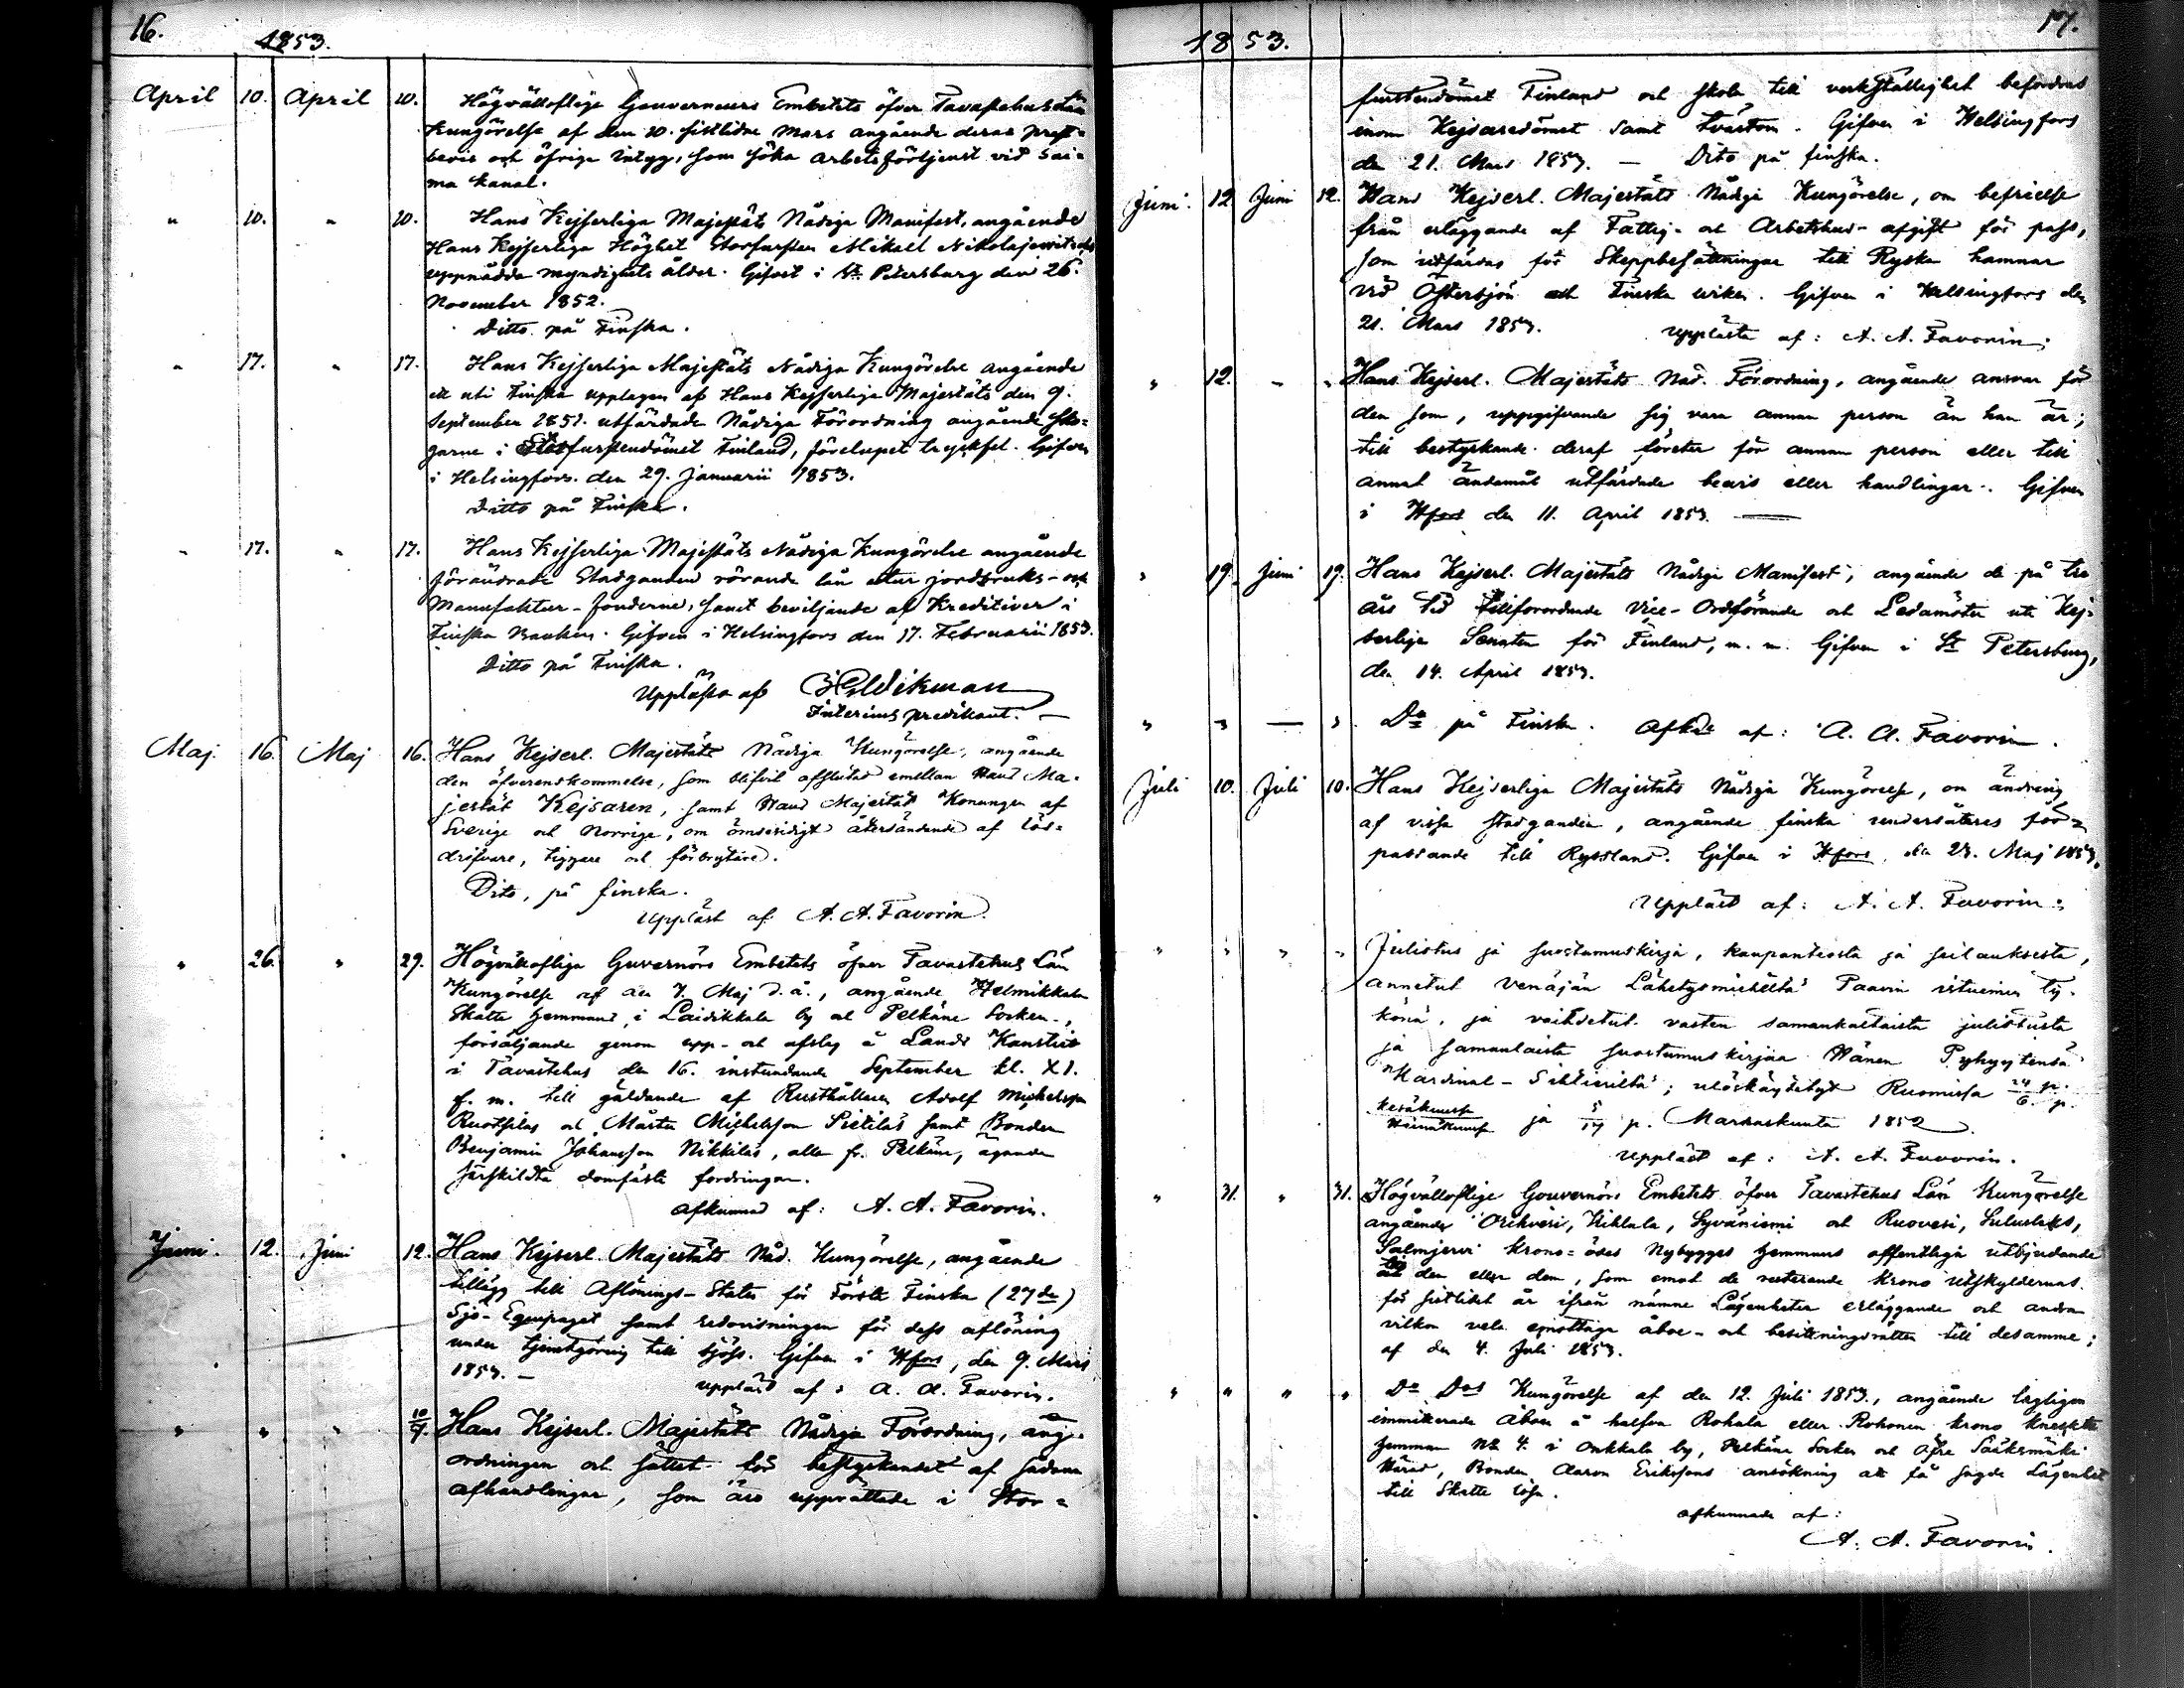 16.
1853.
April 10. April 10. Högvälloflige Gouverneurs Embetets öfver Tavastehus Län
Kungörelse af den 10. sistlidne Mars angående deras prest-
bevis och öfrige intyg, som söka arbetsförtjenst vid Sai-
ma kanal.
" 10. " 10. Hans Kejserliga Majestäts Nådiga Manifest, angående
Hans Kejserliga Höghet Storfursten Mikael Nikolajewitschs
uppnådda myndighets ålder. Gifvet i St. Petersburg den 26.
November 1852.
Ditto på Finska.
" 17. " 17. Hans Kejserliga Majestäts Nådiga Kungörelse angående
ett uti Finska upplagen af Hans Kejserliga Majestäts den 9.
September 1851. utfärdade Nådiga Förordning angående sko-
garne i Storfurstendömet Finland, förelupet tryckfel. Gifven
i Helsingfors. den 29. Januarii 1853.
Ditto på Finska.
" 17. " 17. Hans Kejserliga Majestäts Nådiga Kungörelse angående
förändrade Stadganden rörande lån utur jordbruks- och
Manufaktur-fonderne, samt beviljande af Kreditiver i
Finska Banken. Gifven i Helsingfors den 17. Februarii 1853.
Ditto på Finska.
Uppläsen af Widkman
Interims predikant. —
Maj. 16. Maj 16. Hans Kejserl. Majestäts Nådiga Kungörelse, angående
den öfverenskommelse, som blifvit afslutad emellan Hans Ma-
jestät Kejsaren, samt Hans Majestät Konungen af
Sverige och Norrige, om ömsesidigt återsändande af lös-
drifvare, tiggare och förbrytare.
Dito, på finska.
Uppläst af A. A. Favorin.
" 26. " 29. Högvällofliga Guvernörs Embetets öfver Tavastehus Län
Kungörelse af den 7. Maj d. å., angående Helmikkala
Skatte hemmans, i Laidikkala by och Pelkäne Socken.,
försäljande genom upp- och afslag å Lands Kansliet
i Tavastehus den 16. instundande September kl. XI.
f. m. till gäldande af Rusthållaren Adolf Michelsson
Ruotsilas och Mårten Michelsson Pietiläs samt Bonden
Benjamin Johansson Nikkiläs, alla fr. Pelkäne, ägande
särskildta domfästa fordringar.
Afkunnad af: A. A. Favorin.
Juni. 12. Juni 12. Hans Kejserl. Majestäts Nåd. Kungörelse, angående
tillägg till Aflönings-Staten för Första Finska (27de)
Sjö-Equipaget samt redovisningen för dess aflöning
under tjenstgöring till sjöss. Gifven i Hfors, den 9. Mars
1853. —
Uppläst af: A. A. Favorin.
" " " 10/7. Hans Kejserl. Majestäts Nådiga Förordning, ang.
ordningen och sättet för bestyrkandet af sådana
afhandlingar, som äro upprättade i Stor-
1853. 17.
furstendömet Finland och skola till verkställighet befordras
inom Kejsaredömet samt tvärtom. Gifven i Helsingfors
den 21. Mars 1853. — Dito på finska.
Juni. 12 Juni 12. Hans Kejserl. Majestäts Nådiga Kungörelse, om befrielse
från erläggande af Fattig- och Arbetshus-afgift för pass,
som utfärdas för Skeppbesättningar till Ryska hamnar
vid Östersjön och Finska viken. Gifven i Helsingfors den
21. Mars 1853. Upplästa af: A. A. Favorin.
" 12. " " Hans Kejserl. Majestäts Nåd. Förordning, angående ansvar för
den som, uppgifvande sig vara annan person än han är;
till bestyrkande deraf företer för annan person eller till
annat ändamål utfärdade bevis eller handlingar. Gifven
i Hfors den 11. April 1853. —
" 19. Juni 19. Hans Kejserl. Majestäts Nådiga Manifest, angående de på tre
års tid tillförordnade Vice-Ordförande och Ledamöter uti Kej-
serliga Senaten för Finland, m. m. Gifven i St Petersburg,
den 14. April 1853.
" " — " Do på Finska. Afkdt af: A. A. Favorin.
Juli 10. Juli 10. Hans Kejserliga Majestäts Nådiga Kungörelse, om ändring
af vissa stadganden, angående finska undersåtares för-
passande till Ryssland. Gifven i Hfors, den 23. Maj 1853.
Uppläst af: A. A. Favorin.
" " " " Julistus ja suostumuskirja, kaupanteosta ja seilauksesta,
annetut Venäjän Lähetysmieheltä Paavin istuimen ty-
könä, ja vaihdetut vasten samankaltaista julistusta
ja samanlaista suostumuskirjaa Hänen Pyhyytensä
Kardinal-Sihtieriltä; uloskäytetyt Ruomissa 24/6 p. p.
Kesäkuussa
Heinäkuussa ja 5/17 p. Marraskuuta 1852.
Uppläst af: A. A. Favorin.
" 31. " 31. Högvälloflige Gouvernörs Embetets öfver Tavastehus Län Kungörelse
angående Orihvesi, Kihlala, Syvänismi och Ruovesi,
Salmjervi krono-ödes Nybygges hemmans offentliga utbjudande
åt den eller dem, som emot de resterande krono utskyldernas
för sistlidet år ifrån nämne Lägenheter erläggande och andra
vilkor vela emottaga åboe- och besittningsrätten till desamme;
af den 4. Juli 1853.
" " " " Do Dos Kungörelse af den 12. Juli 1853., angående lagligen
immitterade Åboen å halfva Rohala eller Rohonen krono knekte
hemman No 4. i Onkkala by, Pelkäne Socken och Öfre Sääksmäki
Härad, Bonden Aaron Erikssons ansökning att få sagde Lägenhet
till Skatte lösa.
afkunnade af:
A. A. Favorin.